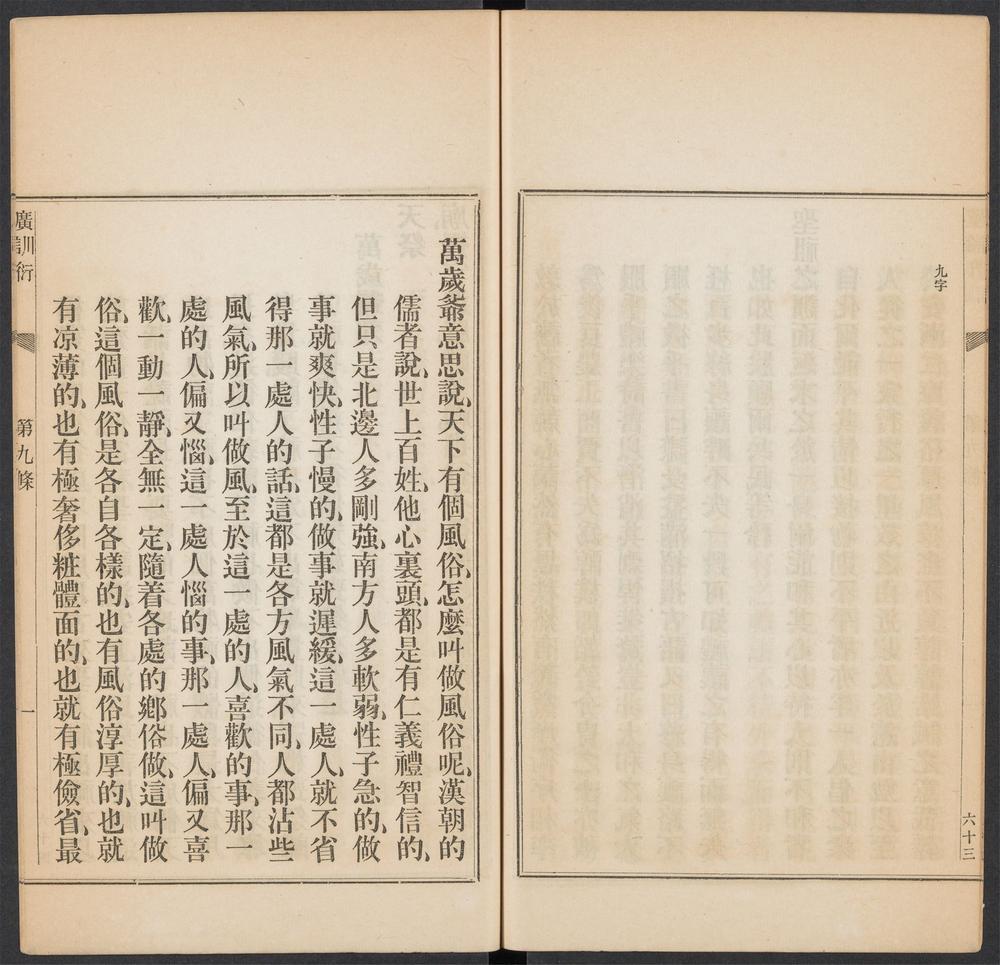 九字
六十三
萬歲爺意思說、天下有個風俗、怎麼叫做風俗呢、漢朝的
儒者說、世上百姓、他心裏頭、都是有仁義禮智信的、
但只是北邊人多剛強、南方人多軟弱、性子急的、做
事就爽快、性子慢的、做事就遲緩、這一處人、就不省
得那一處人的話、這都是各方風氣不同、人都沾些
風氣、所以叫做風、至於這一處的人、喜歡的事、那一
處的人、偏又惱、這一處人惱的事、那一處人、偏又喜
歡、一動一靜、全無一定、隨着各處的鄉俗做、這叫做
俗、這個風俗、是各自各樣的、也有風俗淳厚的、也就
有凉薄的、也有極奢侈粧體面的、也就有極儉省、最
廣訓衍
第九條
一